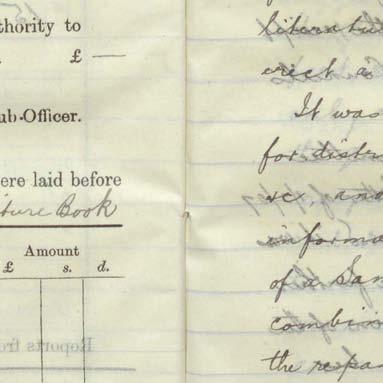 thority to
£ —
ub-Officer.
ere laid before
iture Book
Amount
£ s. d.
Reports fro
literatu
erect a
It was
for distri
&c., and
informa
of a San
combin
the repa